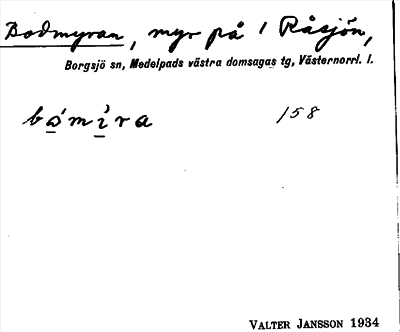 Bodmyran, myr på 1 Råsjön,
Borgsjö sn, Medelpads västra domsagas tg, Västernorrl. l.
158
VALTER JANSSON 1934